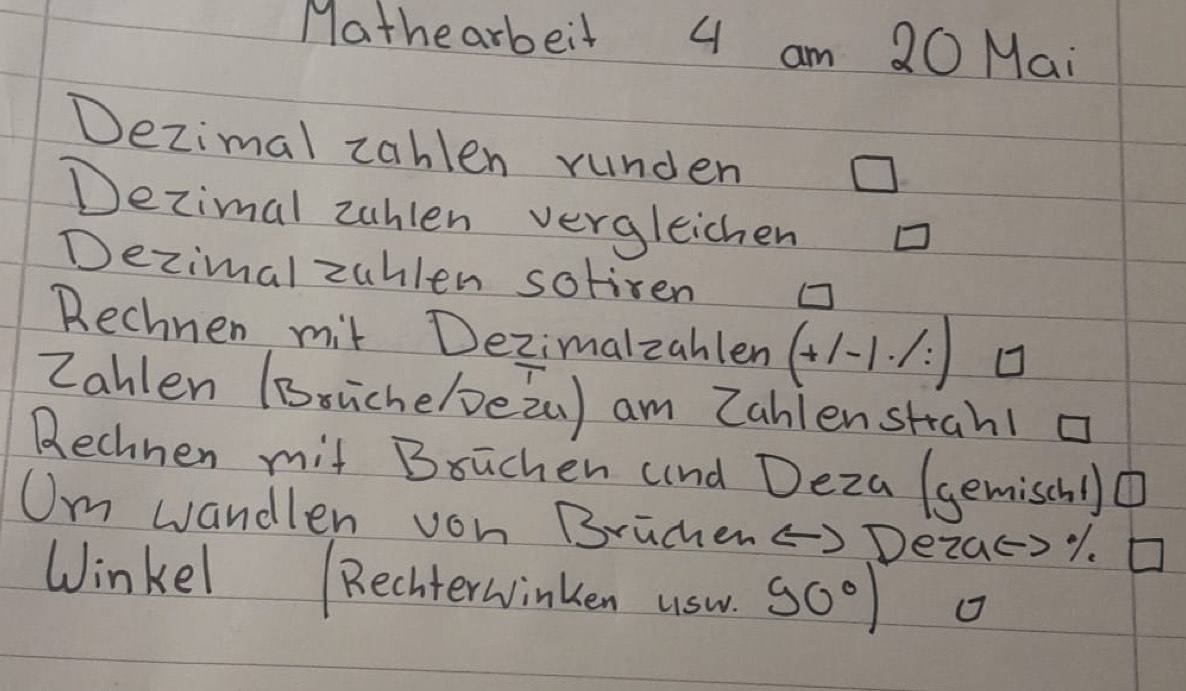 Mathearbeit 4 am 20 Mai
Dezimal zahlen runden □
Dezimal zahlen vergleichen □
Dezimal zahlen sotiren □
Rechnen mit Dezimalzahlen (+/-/·/:) □
Zahlen (Brüche/Deza) am Zahlenstrahl □
Rechnen mit Brüchen und Deza (gemischt) □
Um wandlen von Brüchen <-> Deza <-> % □
Winkel (Rechterwinken usw. 90°) □